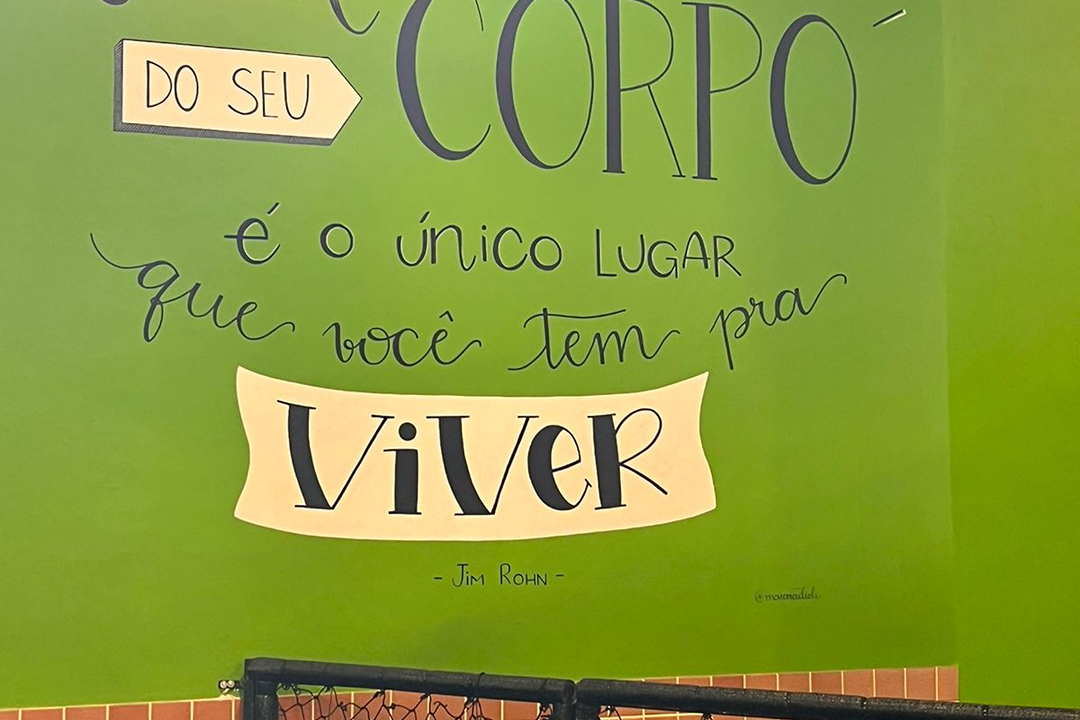 DO SEU CORPO
é o único LUGAR
que você tem pra
ViVeR
- Jim Rohn -